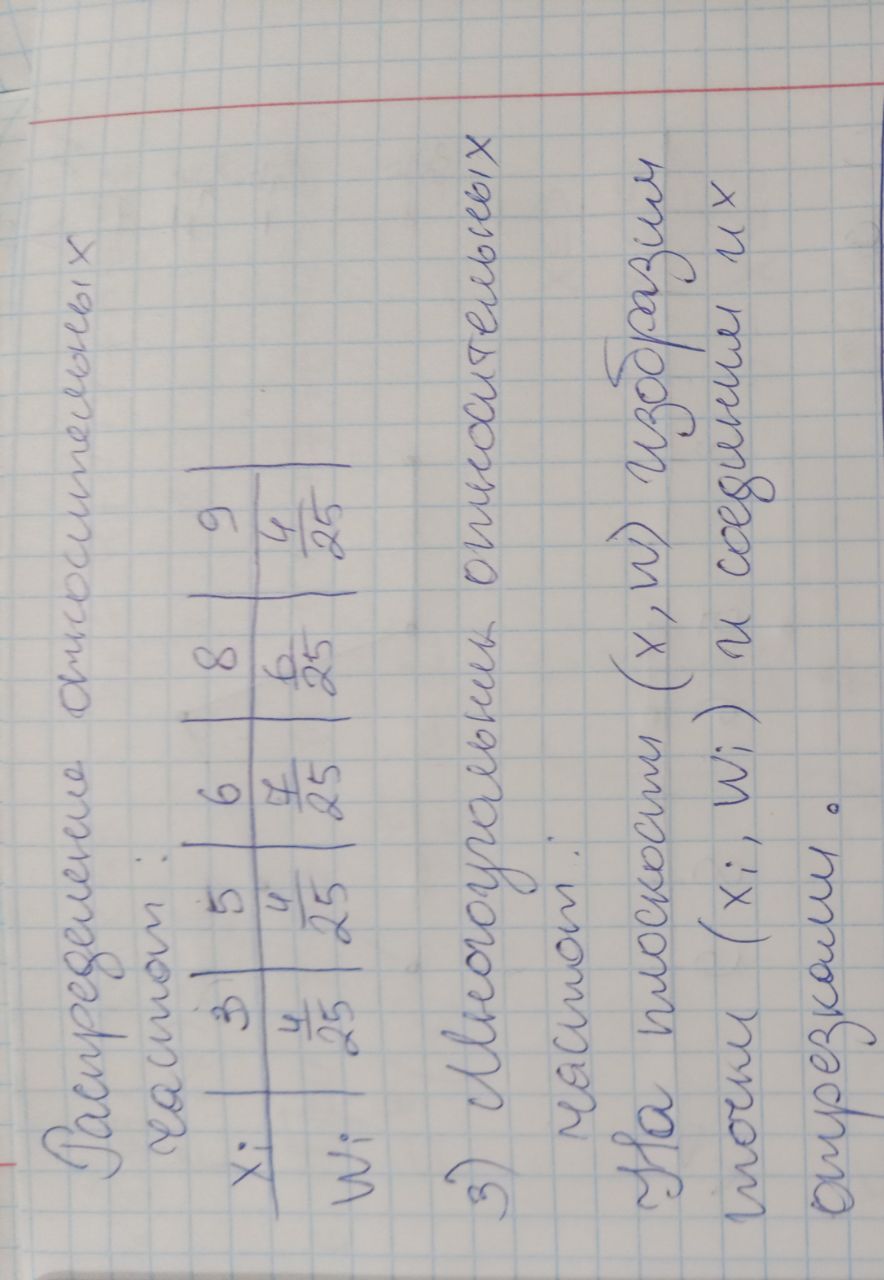 Распределение относительных
частот:
xi | 3 | 5 | 6 | 8 | 9 |
Wi | 4/25 | 4/25 | 7/25 | 6/25 | 4/25 |
3) Многоугольник относительных
частот:
На плоскости (x, W) изобразим
точки (xi, Wi) и соединим их
отрезками.